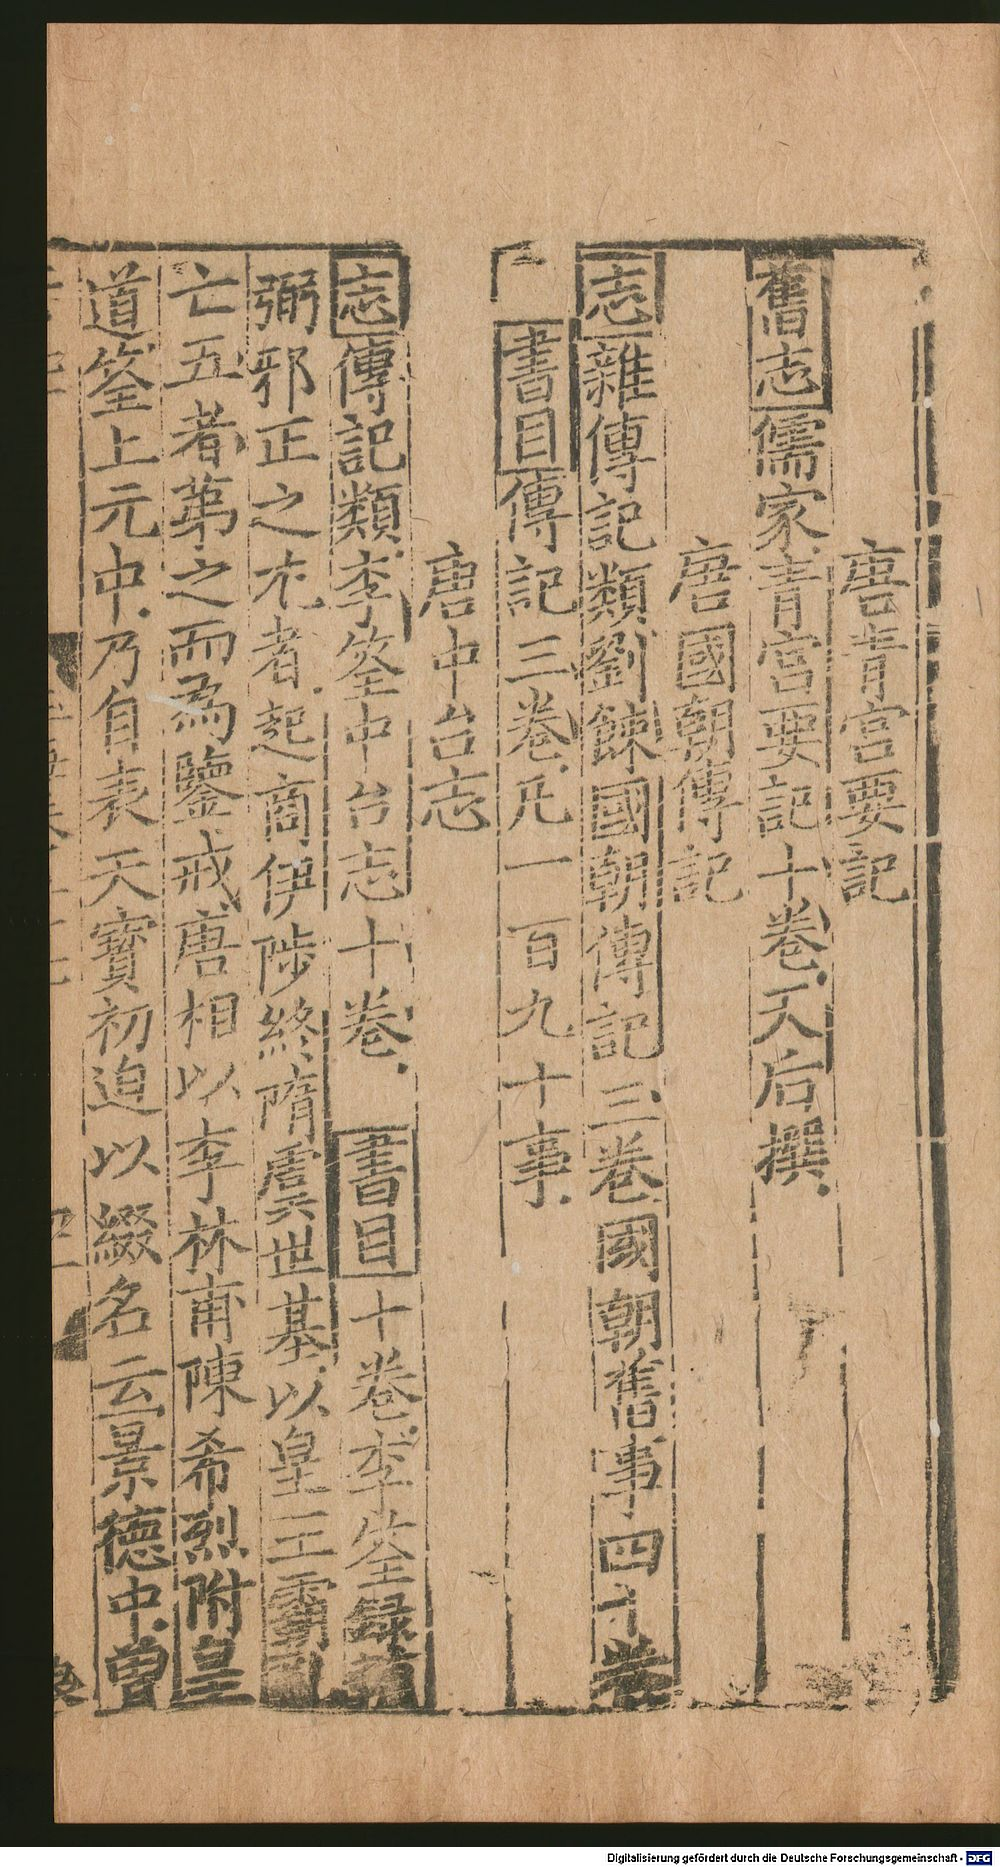 唐青宮要記
舊志儒家青宮要記十卷天后撰
唐國朝傳記
志雜傳記類劉餗國朝傳記三卷國朝舊事四十卷
書目傳記三卷凡一百九十事
唐中台志
志傳記類李筌中台志十卷 書目十卷李筌錄
弼邪正之
者起商伊陟終隋虞世基以皇王霸
亡五者第之而為鑒戒唐相以李林甫陳希烈附皇
道筌上元中乃自表天寶初迫以綴名云景德中曽
Digitalisierung gefördert durch die Deutsche Forschungsgemeinschaft - DFG